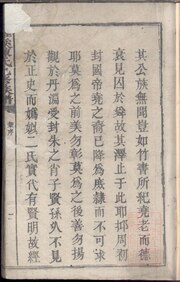 其公族無聞豈如竹書所紀堯老而德
衰見囚於舜故其澤止于此耶抑周初
封國帝堯之裔已降為庶隸而不可
耶莫為之前美勿彰莫為之後善勿揚
觀於丹淵受封朱之肖子賢孫久不見
於正史而嬀劉二氏實代有賢明故經